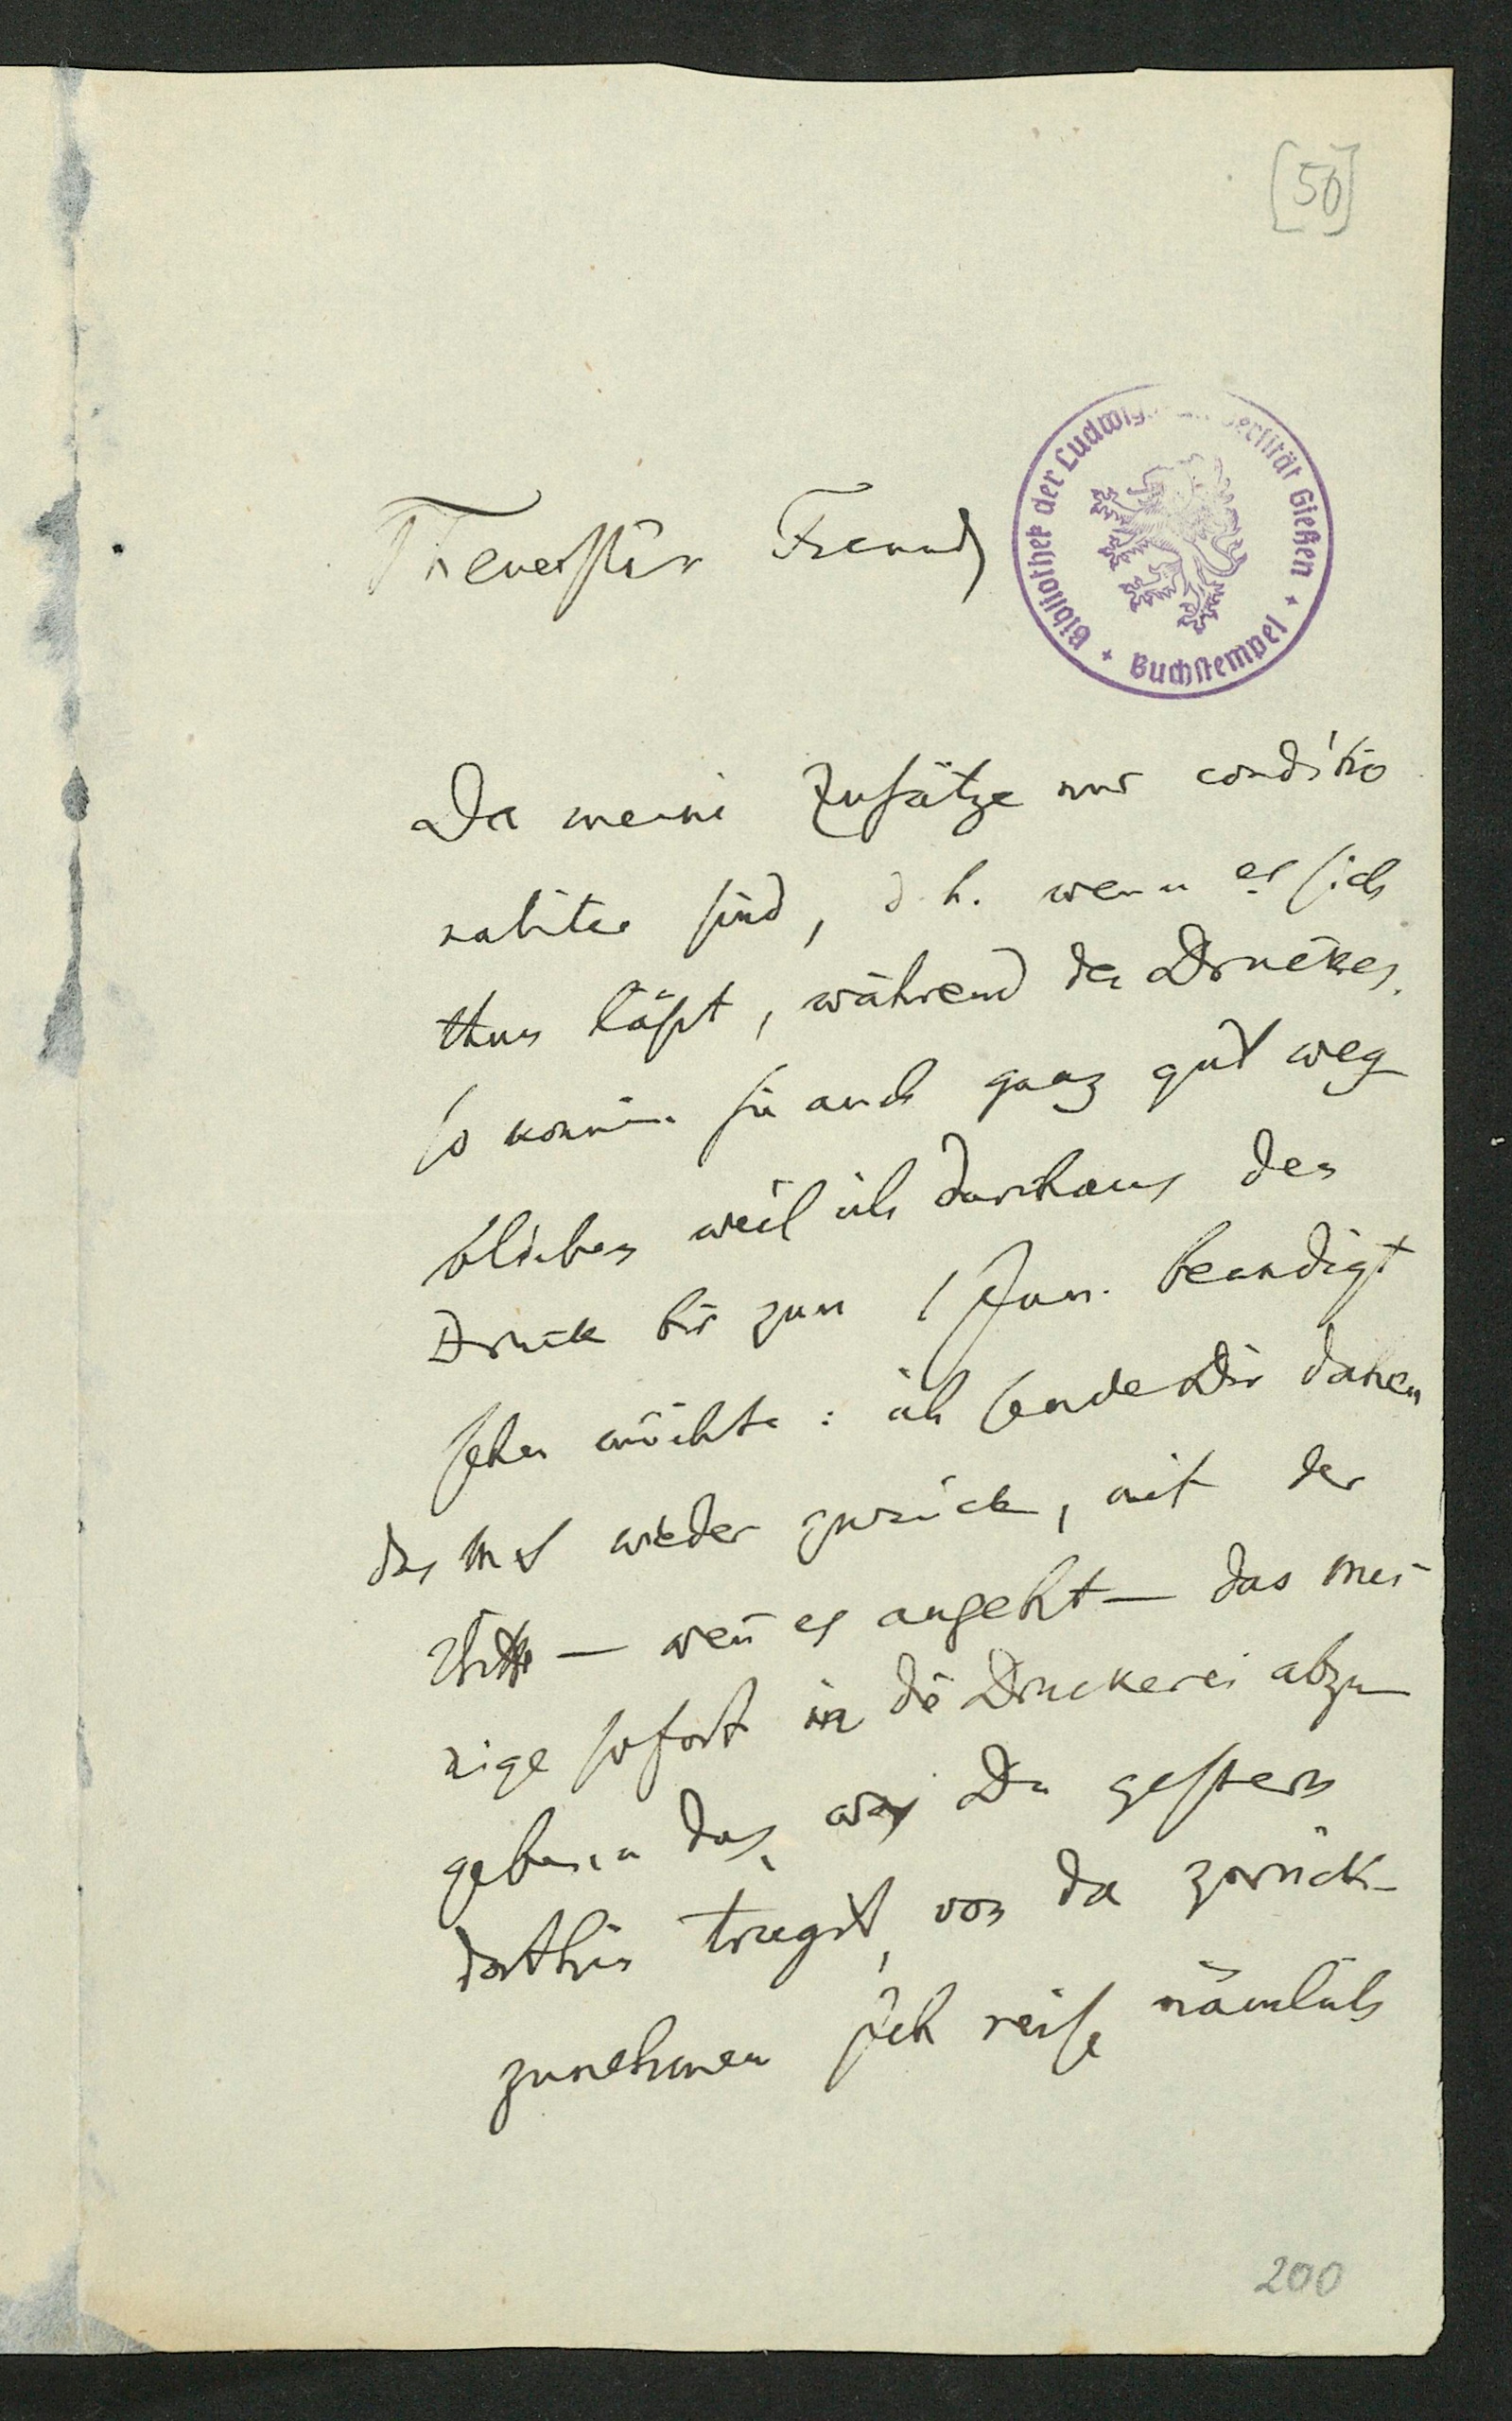 [50]
Theuerster Freund
Bibliothek der Ludwigs-Universität Gießen + Buchstempel +
Da meine Zusätze nur conditio
nabiter sind, d. h. wenn es sich
thun läßt, während des Druckes.
so können sie auch ganz gut weg
bleiben weil ich durchaus den
Druck bis zum 1 Jan. beendigt
sehen möchte: ich sende Dir daher
das Ms wieder zurück, mit der
Bitte — wen̄ es angeht — das mei
nige sofort in die Druckerei abzu
geben u das, was Du gestern
dorthin trugst, von da zurück-
zunehmen Ich reise nämlich
200